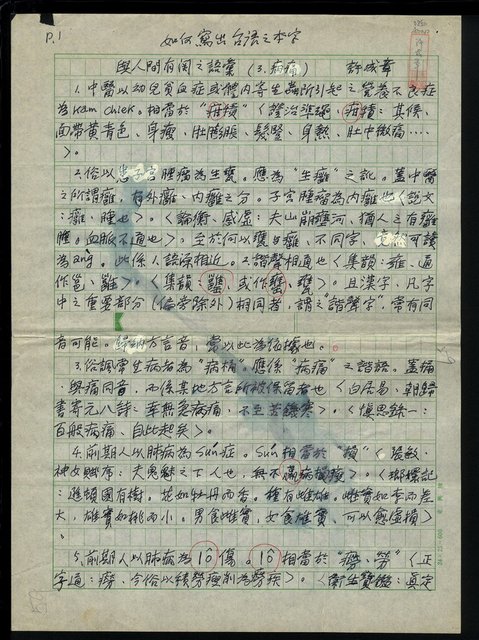 P.1
如何寫出台語之本字
與人間有關之語彙(3.病痛) 許成章
1.中醫以幼兒貧血症或體內寄生蟲所引起之營養不良症
為kam chiek。相當於"疳積"《證治準繩:疳積:其候、
面帶黃青色、身瘦、肚膨脹、髮豎、身熱、肚中微痛……
》。
2.俗以患子宮腫痛為生甕。應為"生癰"之訛。蓋中醫
之所謂癰,有外癰、內癰之分。子宮腫痛為內癰也《說文
:癰、腫也》。《論衡、感虛:夫山崩壅河、猶人之有癰
腫。血脈不通也》。至於何以甕與癰、不同字、
為ang。此係1.語源相近。2.諧聲相通也《集韻:雍、通
作邕、雝》。《集韻: 、或作 、甕》。且漢字、凡字
中之重要部分(偏旁除外)相同者,謂之"諧聲字",常有同
音可能。歸納方言音,常以此為依據也。
3.俗謂常生病者為"病桶"。應係"病痛"之諧語。蓋桶
與痛同音,而係某地方言所被保留者也《白居易、
書寄元八詩:幸無急病痛、不至苦饑寒》。《慎思錄一:
百般病痛、自此起矣》。
4.前期人以肺病為sún症。sún相當於"損"《張敏・
神女賦序:夫鬼魅之下人也,無不羸病損瘦》。《
:進頓國有樹。花如牡丹而香。種有雌雄。雌實如李而差
大,雄實如桃而小。男食雌實,女食雄實、可以愈虛損》
。
5.前期人以肺病為lô傷。lô相當於"癆、勞"《正
字通:癆、今俗以積勞瘦削為勞疾》。《衛生寶鑑:真定